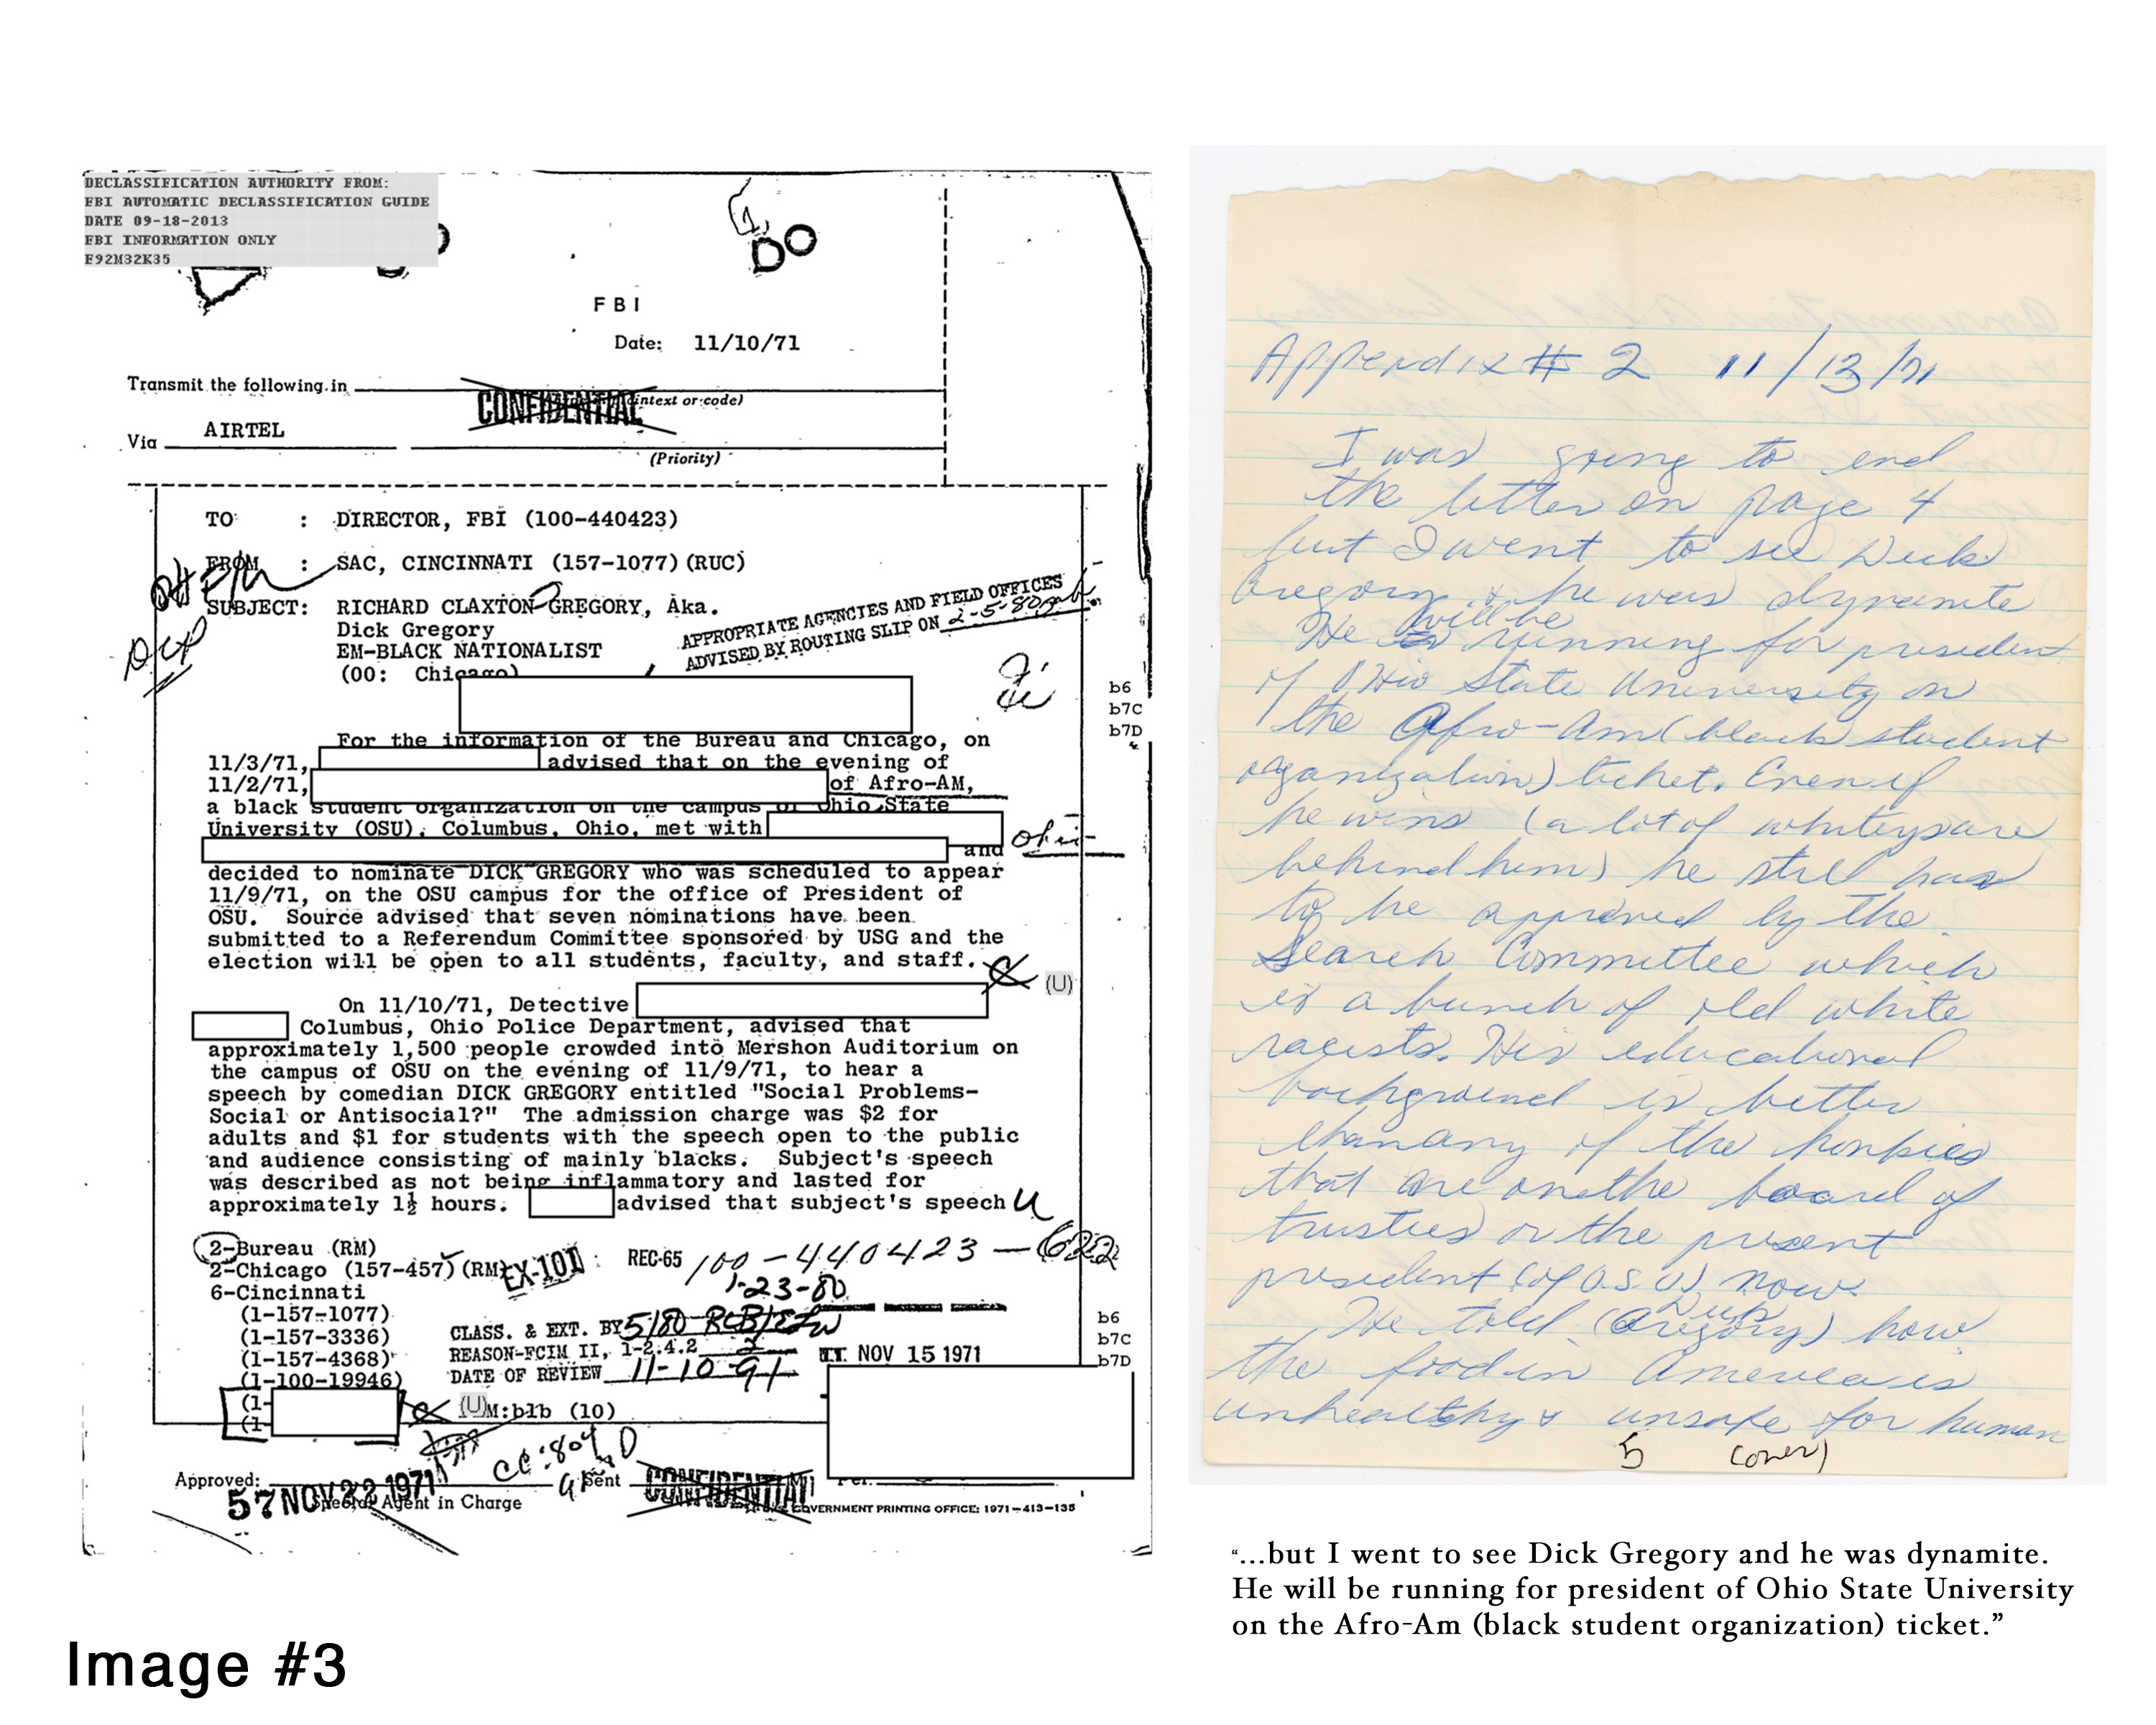 DECLASSIFICATION AUTHORITY FROM:
FBI AUTOMATIC DECLASSIFICATION GUIDE
DATE 09-18-2013
FBI INFORMATION ONLY
F92M32K35
FBI
Date: 11/10/71
Transmit the following in
CONFIDENTIAL
intext or code)
Via AIRTEL
(Priority)
TO : DIRECTOR, FBI (100-440423)
FROM : SAC, CINCINNATI (157-1077)(RUC)
SUBJECT: RICHARD CLAXTON GREGORY, Aka.
Dick Gregory
EM-BLACK NATIONALIST
(OO: Chicago)
APPROPRIATE AGENCIES AND FIELD OFFICES
ADVISED BY ROUTING SLIP ON 2-5-80
b6
b7C
b7D
For the information of the Bureau and Chicago, on
11/3/71, advised that on the evening of
11/2/71, of Afro-AM,
a black student organization on the campus of Ohio State
University (OSU), Columbus, Ohio, met with
and
decided to nominate DICK GREGORY who was scheduled to appear
11/9/71, on the OSU campus for the office of President of
OSU. Source advised that seven nominations have been
submitted to a Referendum Committee sponsored by USG and the
election will be open to all students, faculty, and staff.
(U)
On 11/10/71, Detective
Columbus, Ohio Police Department, advised that
approximately 1,500 people crowded into Mershon Auditorium on
the campus of OSU on the evening of 11/9/71, to hear a
speech by comedian DICK GREGORY entitled "Social Problems-
Social or Antisocial?" The admission charge was $2 for
adults and $1 for students with the speech open to the public
and audience consisting of mainly blacks. Subject's speech
was described as not being inflammatory and lasted for
approximately 1½ hours. advised that subject's speech U
2-Bureau (RM)
2-Chicago (157-457) (RM)
6-Cincinnati
(1-157-1077)
(1-157-3336)
(1-157-4368)
(1-100-19946)
(1-
(1-
EX-101
REC-65 100-440423-622
1-23-80
CLASS. & EXT. BY 5180
REASON-FCIM II, 1-2.4.2 2
DATE OF REVIEW 11-10-91
NOV 15 1971
b6
b7C
b7D
(U)
M:blb (10)
Approved:
57 NOV 22 1971
Special Agent in Charge
Sent
CONFIDENTIAL
GOVERNMENT PRINTING OFFICE: 1971-413-135
Appendix # 2 11/13/71
I was going to end
the letter on page 4
but I went to see Dick
Gregory & he was dynamite
He will be running for president
of Ohio State University on
the Afro-Am (black student
organization) ticket. Even if
he wins (a lot of whiteys are
behind him) he still has
to be approved by the
Search Committee which
is a bunch of old white
racists. His educational
background is better
than any of the honkies
that are on the board of
trustees or the present
president (of O.S.U) now.
He told (Dick Gregory) how
the food in America is
unhealthy & unsafe for human
5 (over)
“...but I went to see Dick Gregory and he was dynamite.
He will be running for president of Ohio State University
on the Afro-Am (black student organization) ticket.”
Image #3